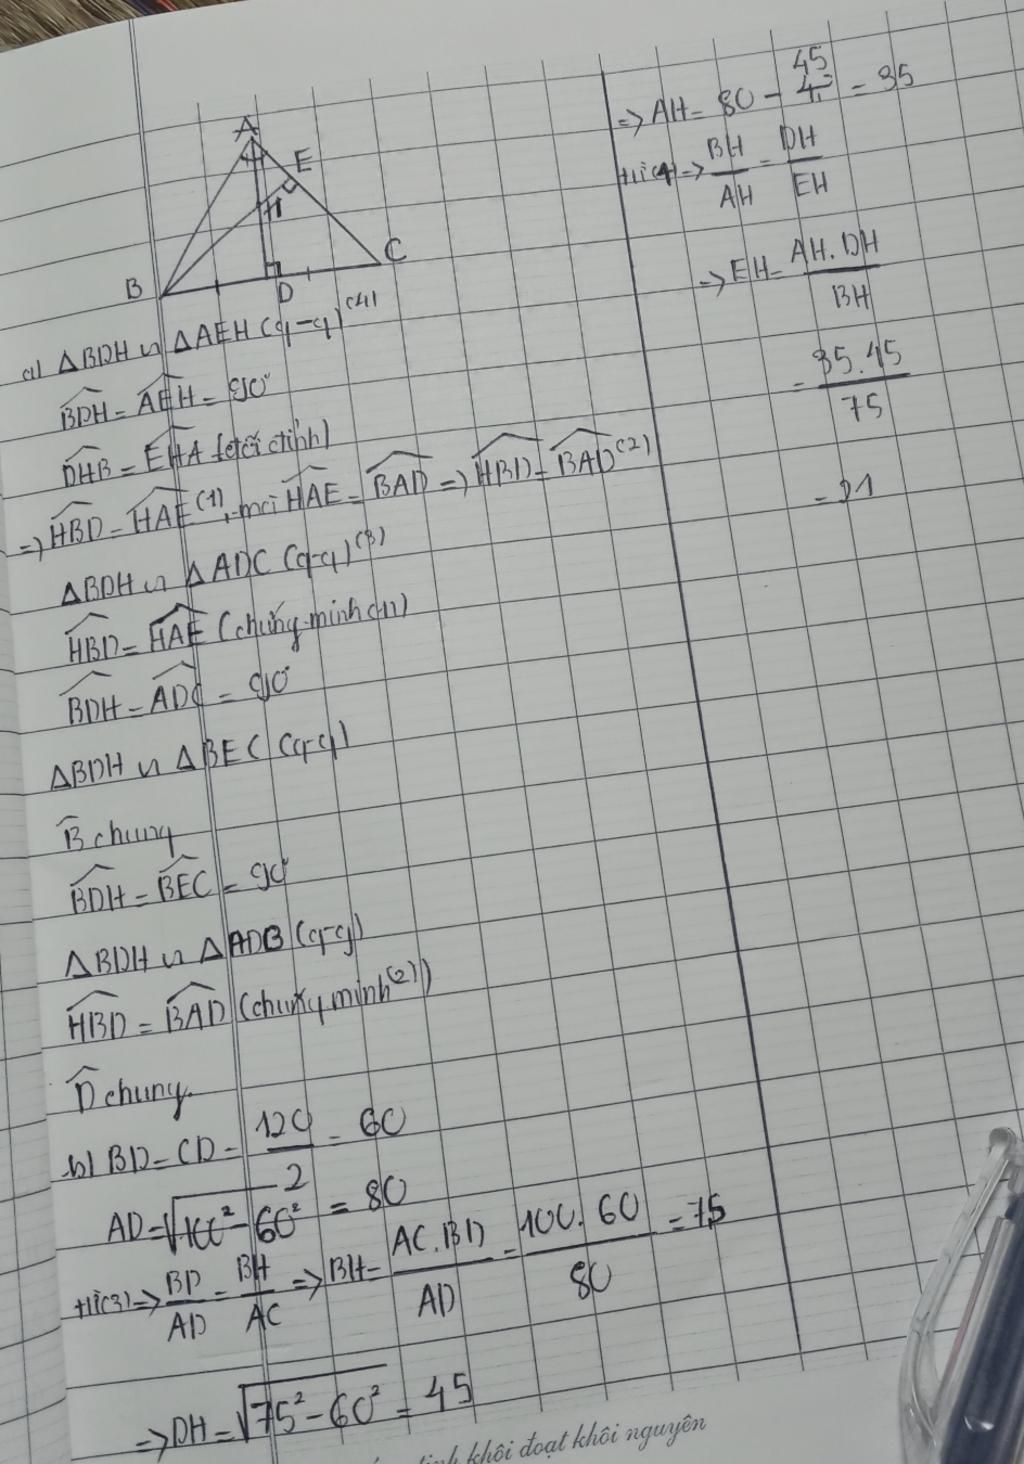 A
E
H
C
B
D
a) ΔBDH ∽ ΔAEH (g-g) (4)
BDH = AEH = 90°
DHB = EHA (đối đỉnh)
=> HBD = HAE (1), mà HAE = BAD => HBD = BAD (2)
ΔBDH ∽ ΔADC (g-g) (3)
HBD = HAE (chứng minh (1))
BDH = ADC = 90°
ΔBDH ∽ ΔBEC (g-g)
B chung
BDH = BEC = 90°
ΔBDH ∽ ΔADB (g-g)
HBD = BAD (chứng minh (2))
D chung.
b) BD = CD = 120/2 = 60
AD = √(100² - 60²) = 80
từ (3) => BD/AD = BH/AC => BH = AC.BD/AD = 100.60/80 = 75
=> DH = √(75² - 60²) = 45
=> AH = 80 - 45 = 35
từ (4) => BH/AH = DH/EH
=> EH = AH.DH/BH
= 35.45/75
= 21
khôi đoạt khôi nguyên